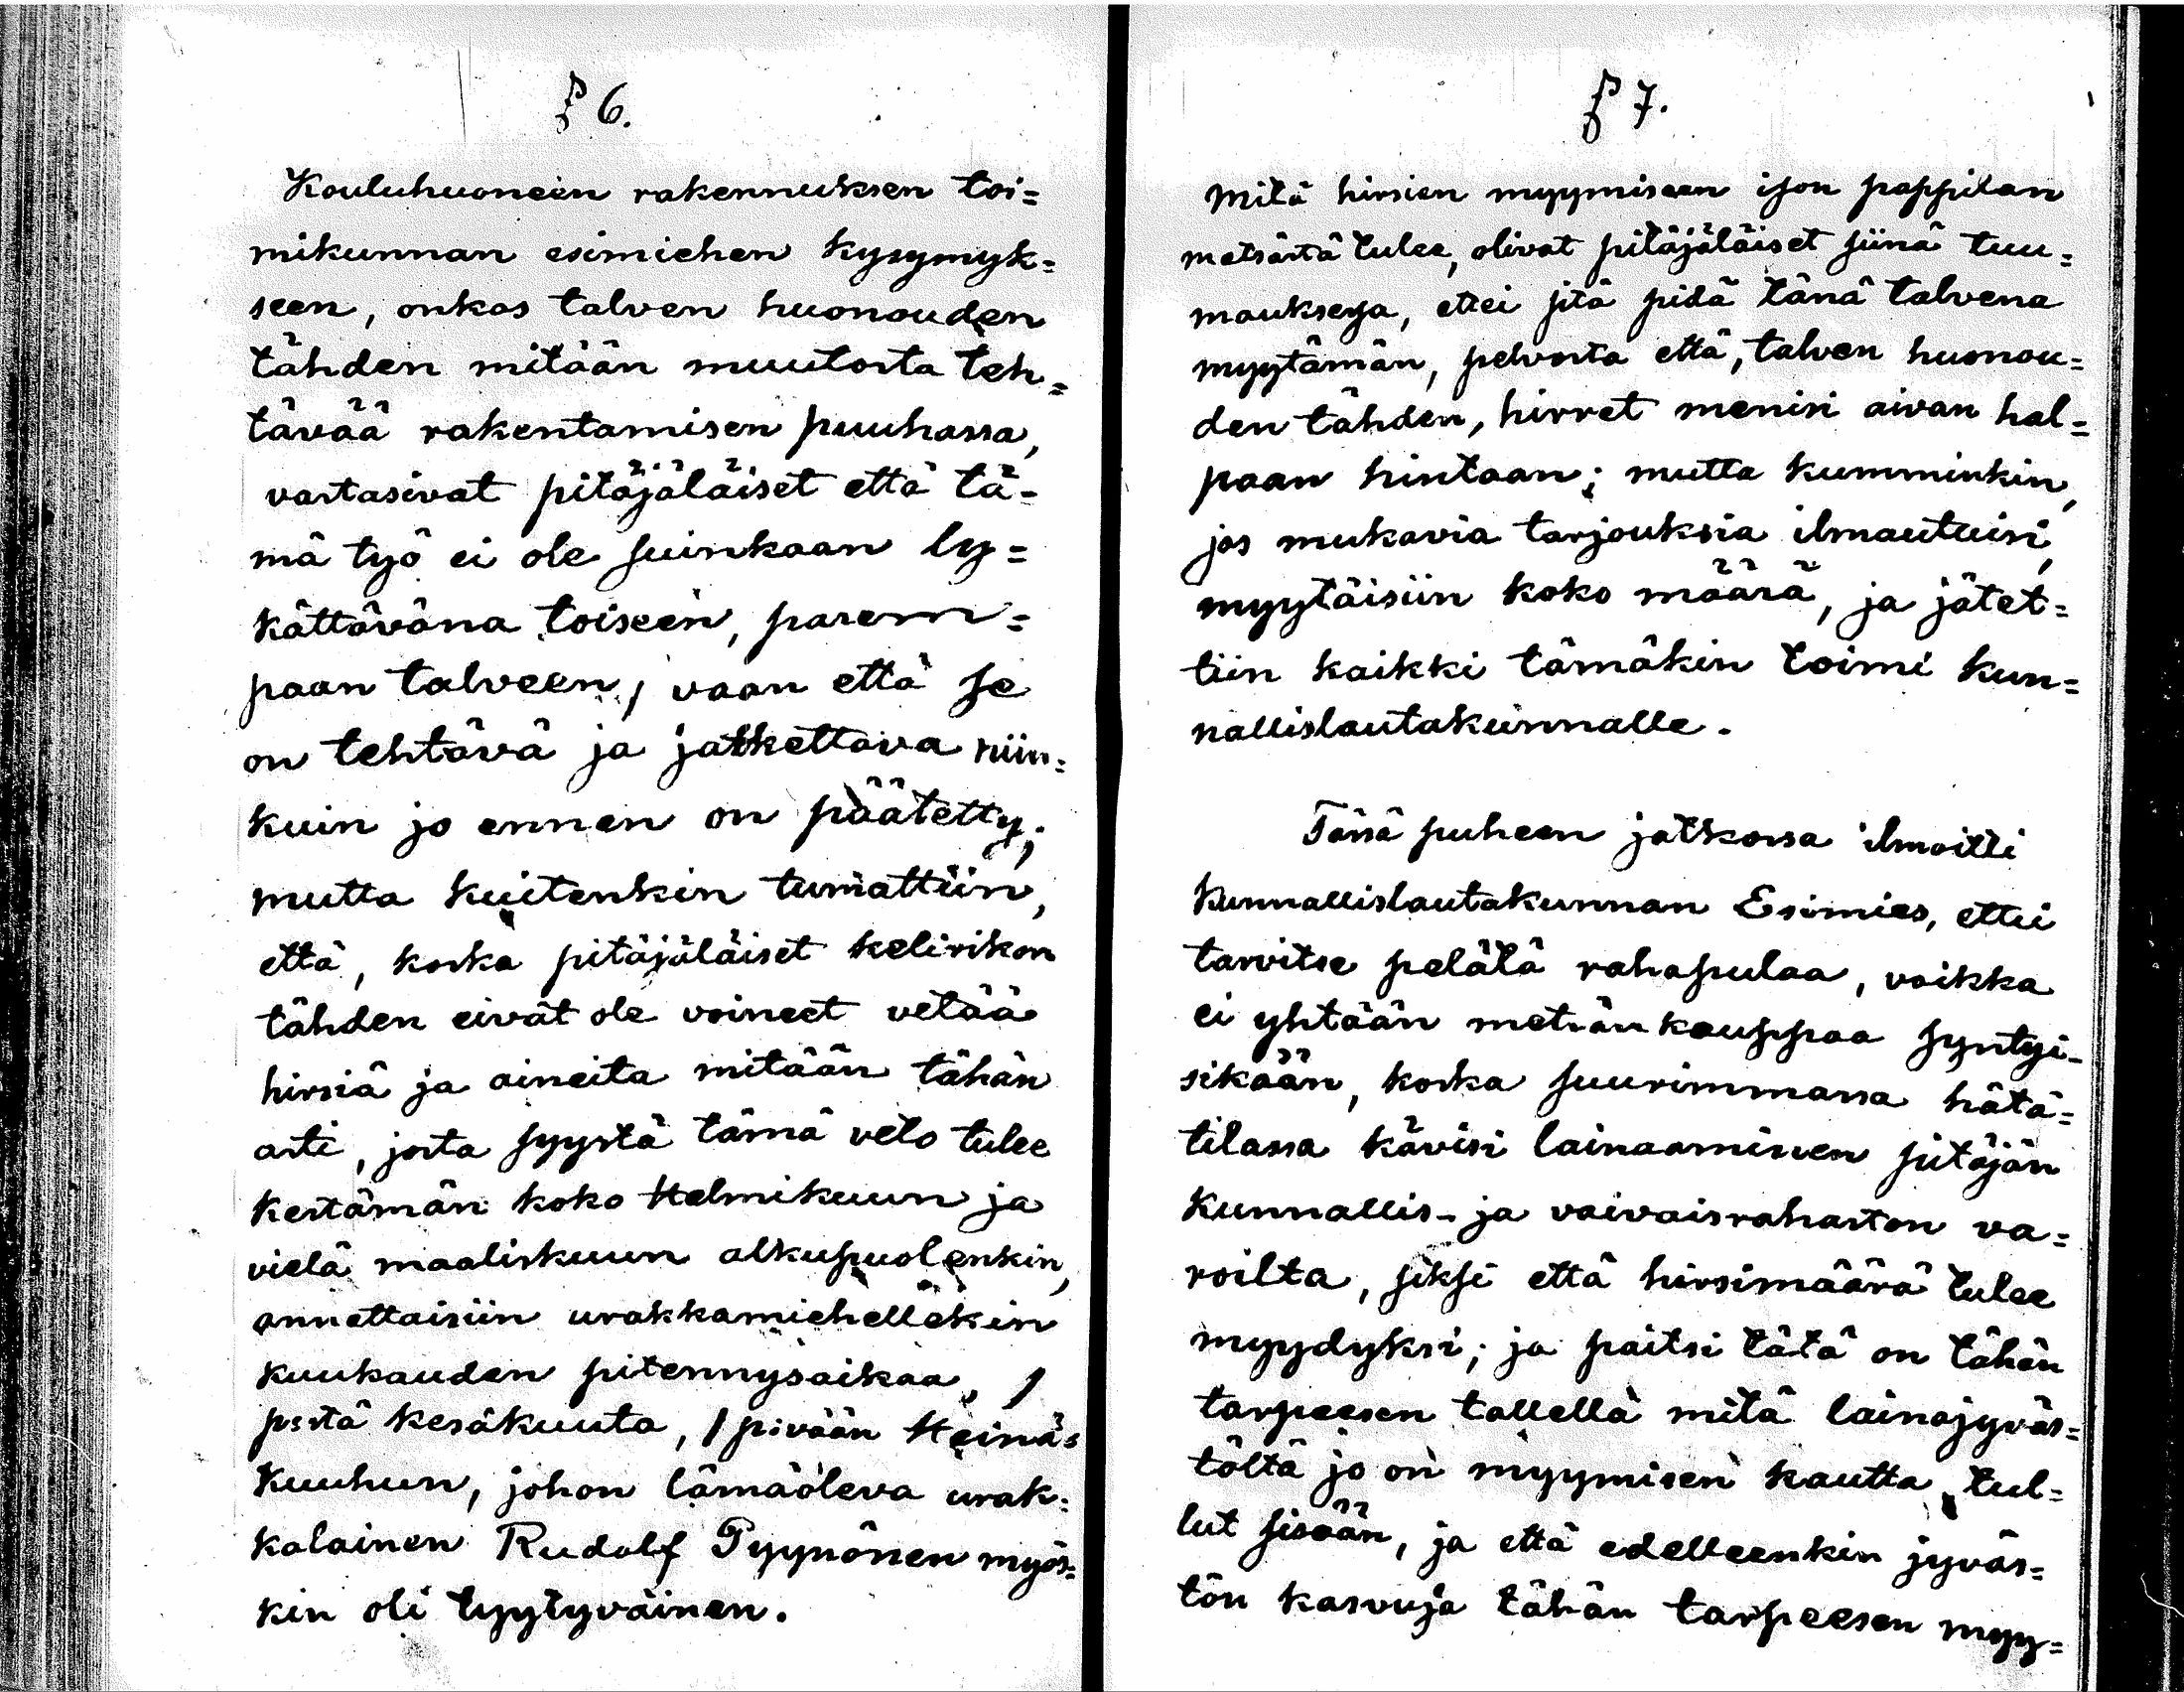 § 6.
Kouluhuoneen rakennuksen toi=
mikunnan esimiehen kysymyk=
seen, onkos talven huonouden
tähden mitään muutosta teh=
tävää rakentamisen puuhassa,
vastasivat pitäjäläiset että tä=
mä työ ei ole suinkaan ly=
kättävänä toiseen, parem=
paan talveen, vaan että se
on tehtävä ja jatkettava niin=
kuin jo ennen on päätetty;
mutta kuitenkin tumattiin,
että, koska pitäjäläiset kelirikon
tähden eivät ole voineet vetää
hirsiä ja aineita mitään tähän
asti, josta syystä tämä veto tulee
kestämän koko Helmikuun ja
vielä maaliskuun alkupuolenkin,
annettaisiin urakkamiehellekin
kuukauden pitennysaikaa, 1
pstä kesäkuuta, 1 pivään Heinä=
kuuhun, johon lämäoleva urak=
kalainen Rudolf Pyynönen myös=
kin oli tyytyväinen.
§ 7.
Mitä hirsien myymiseen ison pappilan
metsästä tulee, olivat pitäjäläiset siinä tuu=
mauksessa, ettei sitä pidä tänä talvena
myytämän, pelvosta että, talven huonou=
den tähden, hirret menisi aivan hal=
paan hintaan; mutta kumminkin,
jos mukavia tarjouksia ilmautuisi,
myytäisiin koko määrä, ja jätet=
tiin kaikki tämäkin toimi kun=
nallislautakunnalle.
Tässä puheen jatkossa ilmoitti
Kunnallislautakunnan Esimies, ettei
tarvitse pelätä rahapulaa, vaikka
ei yhtään metsän kauppaa syntyi-
sikään, koska suurimmassa hätä=
tilassa kävisi lainaaminen pitäjän
Kunnallis- ja vaivaisrahaston va=
roilta, siksi että hirsimäärä tulee
myydyksi; ja paitsi tätä on tähän
tarpeesen tallella mitä lainajyväs=
töltä jo on myymisen kautta tul=
lut sisään, ja että edelleenkin jyväs=
tön kasvuja tähän tarpeesen myy=